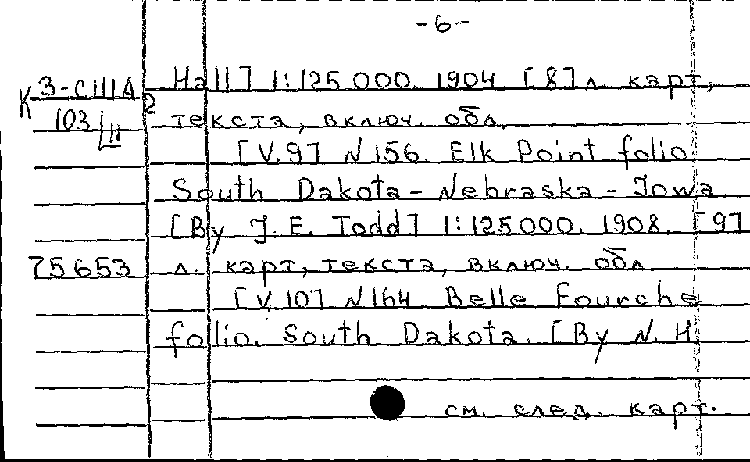 -6-
К 3-США 2
103/II
Hall] 1:125.000. 1904 [8] л. карт,
текста, включ. обл.
[V.9] N 156. Elk Point folio
South Dakota-Nebraska-Iowa
[By J. E. Todd] 1:125000. 1908. [9]
75653
л. карт, текста, включ. обл
[V.10] N164. Belle Fourche
folio. South Dakota. [By N. H.
см. след. карт.